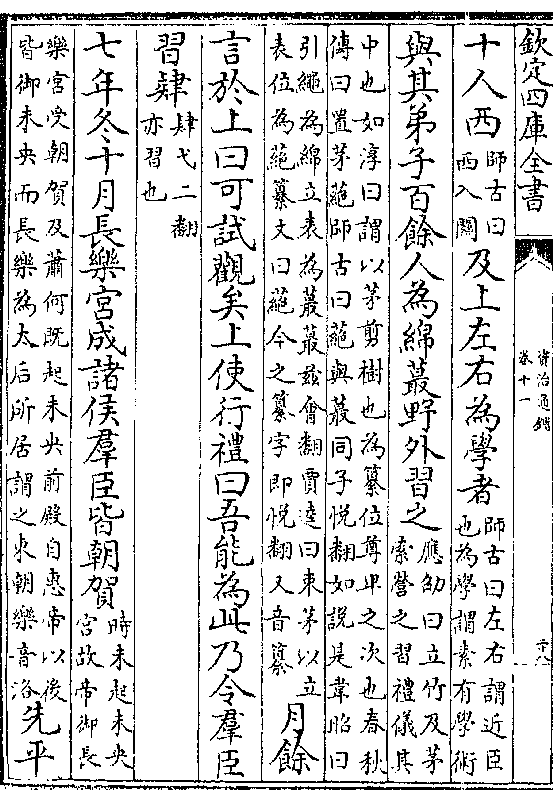 欽定四庫全書
資治通鑑
卷十一
十人西師古曰西入關及上左右為學者師古曰左右謂近臣也為學謂素有學術
與其弟子百餘人為綿蕞野外習之應劭曰立竹及茅索營之習禮儀其
中也如淳曰謂以茅剪樹也為纂位尊卑之次也春秋
傳曰置茅蕝師古曰蕝與蕞同子悦翻如說是韋昭曰
引繩為綿立表為蕞蕞兹會翻賈逵曰束茅以立
表位為蕝纂文曰蕝今之纂字即悦翻又音纂月餘
言於上曰可試觀矣上使行禮曰吾能為此乃令羣臣
習肄肄弋二翻亦習也
七年冬十月長樂宮成諸侯羣臣皆朝賀時未起未央宮故帝御長
樂宮受朝賀及蕭何既起未央前殿自惠帝以後
皆御未央而長樂為太后所居謂之東朝樂音洛先平